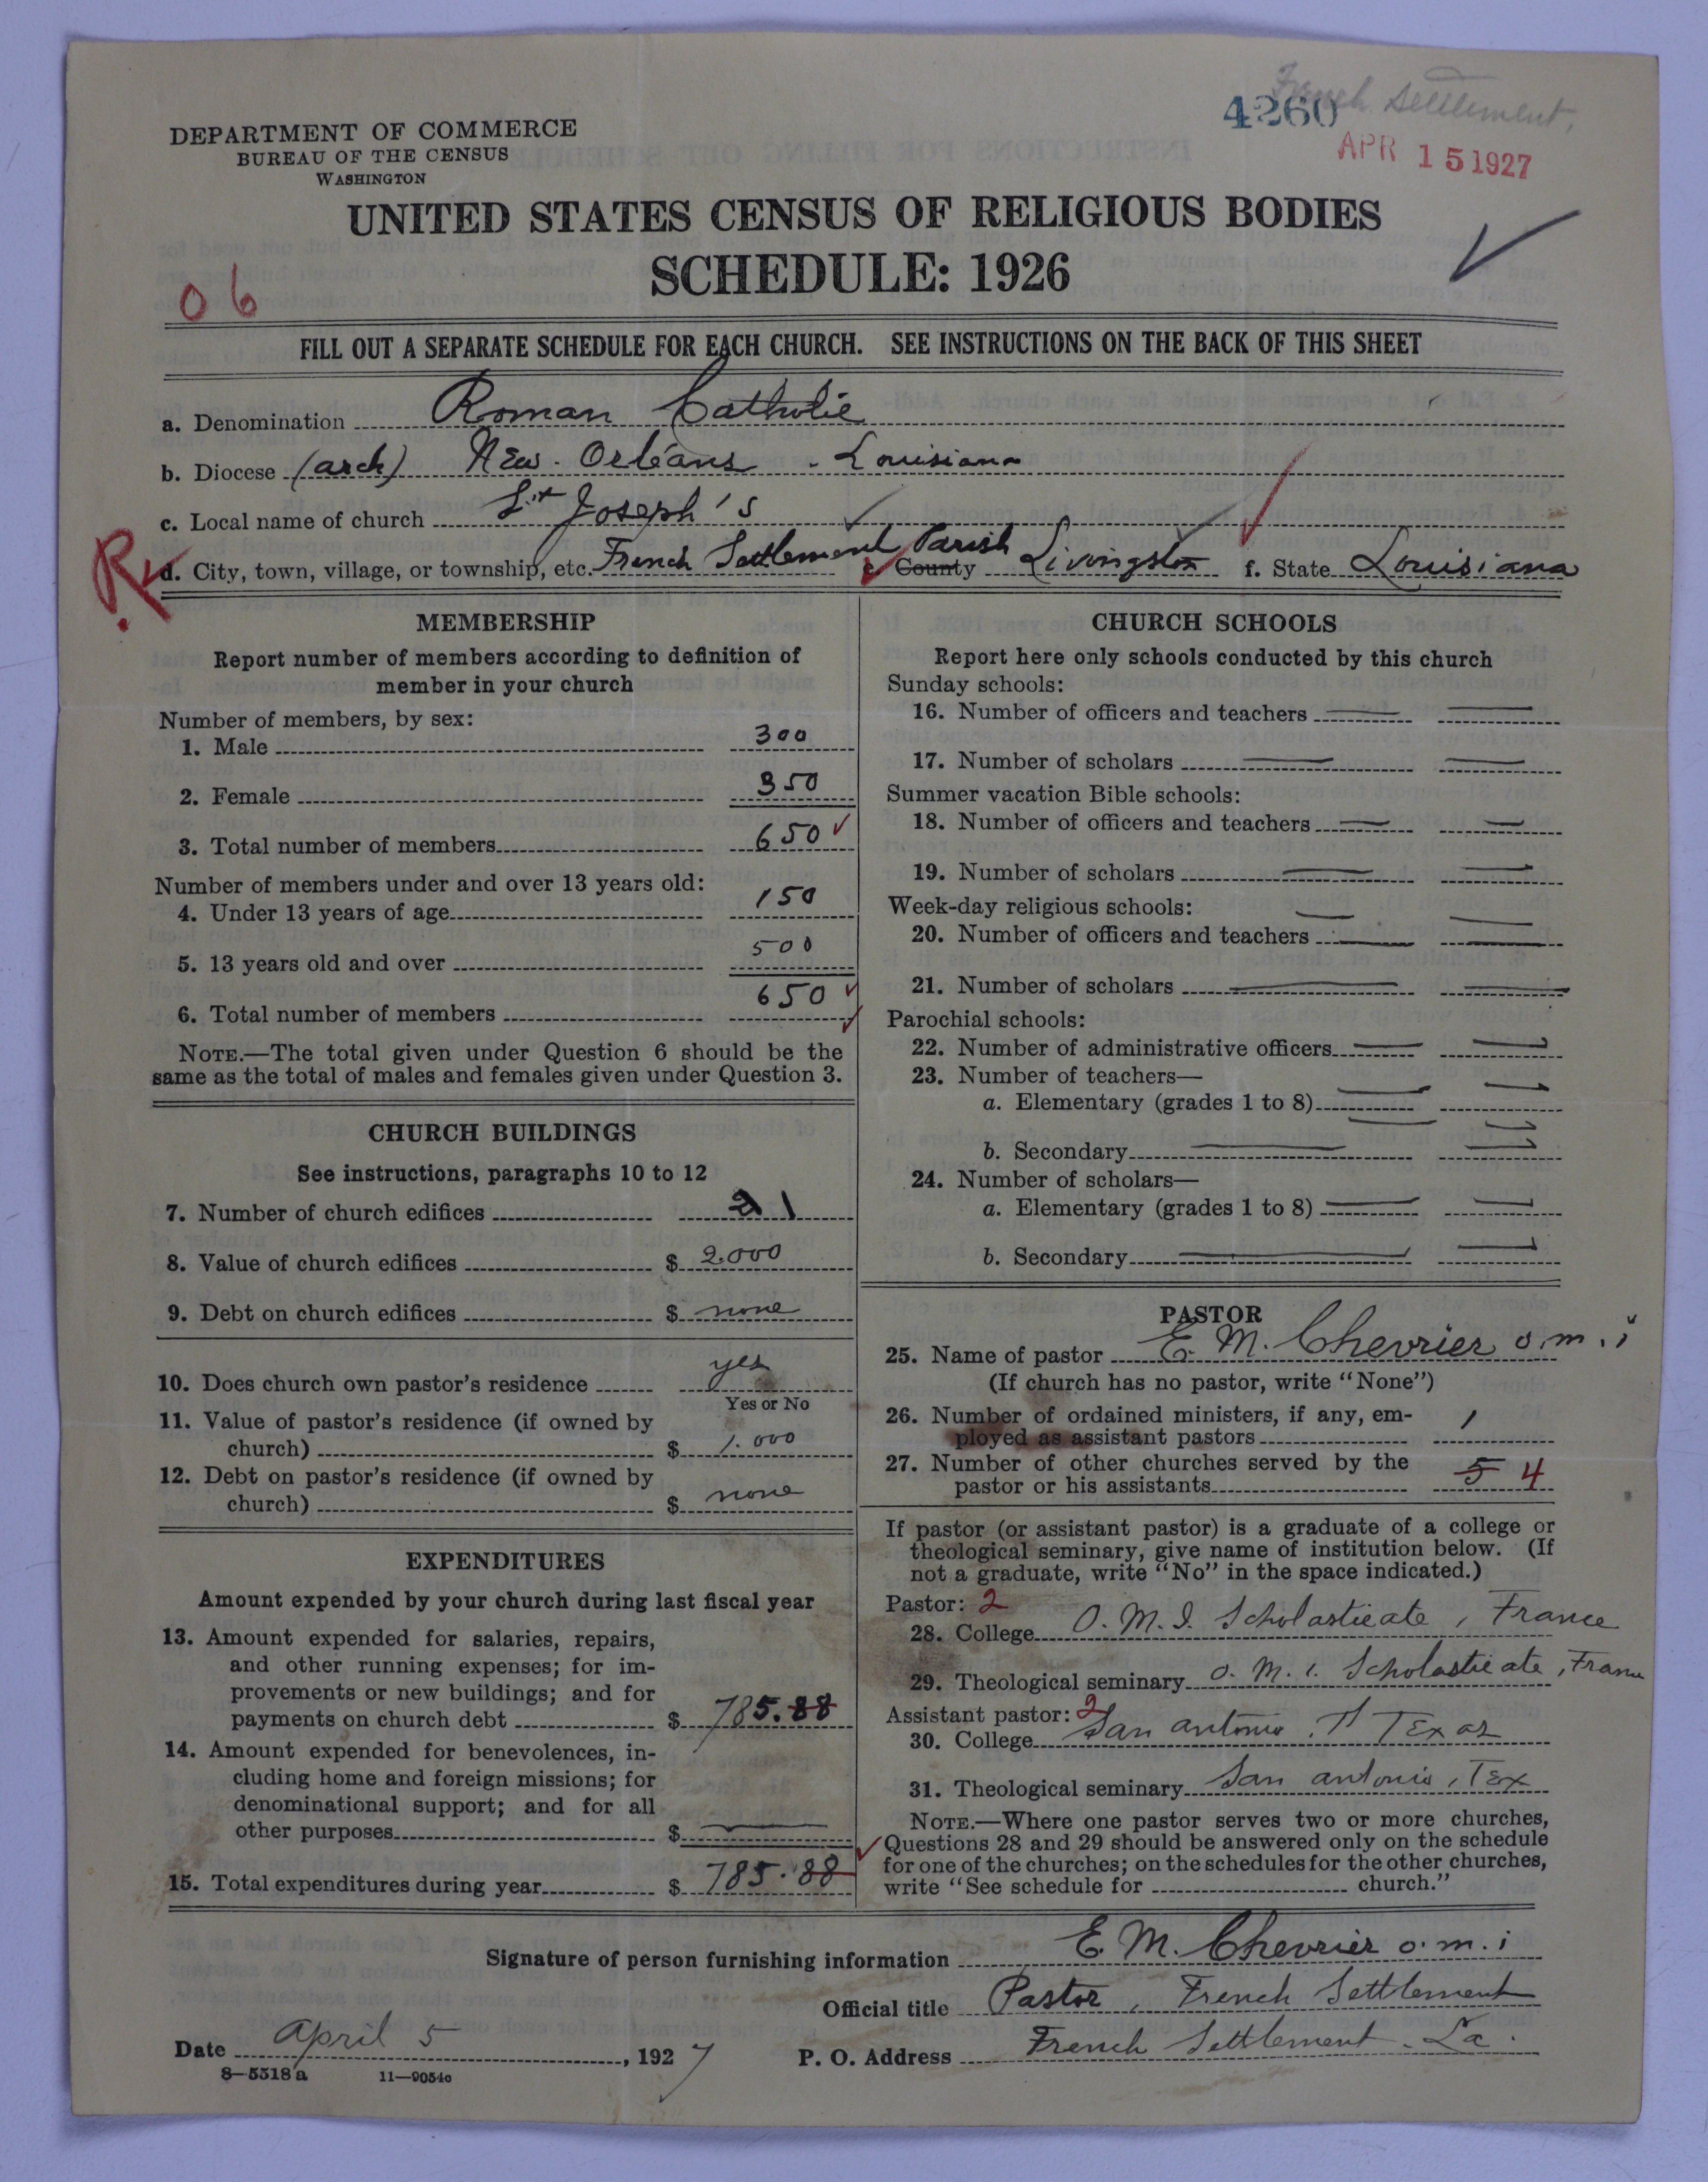 French Settlement,
4260
APR 15 1927
DEPARTMENT OF COMMERCE
BUREAU OF THE CENSUS
WASHINGTON
UNITED STATES CENSUS OF RELIGIOUS BODIES
SCHEDULE: 1926
06
FILL OUT A SEPARATE SCHEDULE FOR EACH CHURCH. SEE INSTRUCTIONS ON THE BACK OF THIS SHEET
a. Denomination Roman Catholic
b. Diocese (arch) New. Orléans - Louisiana
c. Local name of church St Joseph's
R
d. City, town, village, or township, etc. French Settlement e. County Parish Livingston f. State Louisiana
MEMBERSHIP
Report number of members according to definition of
member in your church
Number of members, by sex:
1. Male 300
2. Female 350
3. Total number of members 650
Number of members under and over 13 years old:
4. Under 13 years of age 150
5. 13 years old and over 500
6. Total number of members 650
NOTE.—The total given under Question 6 should be the
same as the total of males and females given under Question 3.
CHURCH BUILDINGS
See instructions, paragraphs 10 to 12
7. Number of church edifices 2 1
8. Value of church edifices $ 2.000
9. Debt on church edifices $ none
10. Does church own pastor's residence yes
Yes or No
11. Value of pastor's residence (if owned by
church) $ 1.000
12. Debt on pastor's residence (if owned by
church) $ none
EXPENDITURES
Amount expended by your church during last fiscal year
13. Amount expended for salaries, repairs,
and other running expenses; for im-
provements or new buildings; and for
payments on church debt $ 785.88
14. Amount expended for benevolences, in-
cluding home and foreign missions; for
denominational support; and for all
other purposes $
15. Total expenditures during year $ 785.88
CHURCH SCHOOLS
Report here only schools conducted by this church
Sunday schools:
16. Number of officers and teachers
17. Number of scholars
Summer vacation Bible schools:
18. Number of officers and teachers
19. Number of scholars
Week-day religious schools:
20. Number of officers and teachers
21. Number of scholars
Parochial schools:
22. Number of administrative officers
23. Number of teachers—
a. Elementary (grades 1 to 8)
b. Secondary
24. Number of scholars—
a. Elementary (grades 1 to 8)
b. Secondary
PASTOR
25. Name of pastor E. M. Chevrier o.m.i
(If church has no pastor, write "None")
26. Number of ordained ministers, if any, em-
ployed as assistant pastors 1
27. Number of other churches served by the
pastor or his assistants 5 4
If pastor (or assistant pastor) is a graduate of a college or
theological seminary, give name of institution below. (If
not a graduate, write "No" in the space indicated.)
Pastor: 2
28. College O. M. I. Scholasticate, France
29. Theological seminary O. M. I. Scholasticate, France
Assistant pastor: 2
30. College San Antonio, Texas
31. Theological seminary San Antonio, Tex
NOTE.—Where one pastor serves two or more churches,
Questions 28 and 29 should be answered only on the schedule
for one of the churches; on the schedules for the other churches,
write "See schedule for church."
Signature of person furnishing information E. M. Chevrier o.m.i
Official title Pastor, French Settlement
Date April 5, 1927 P. O. Address French Settlement. La.
8—5518 a 11—9054c